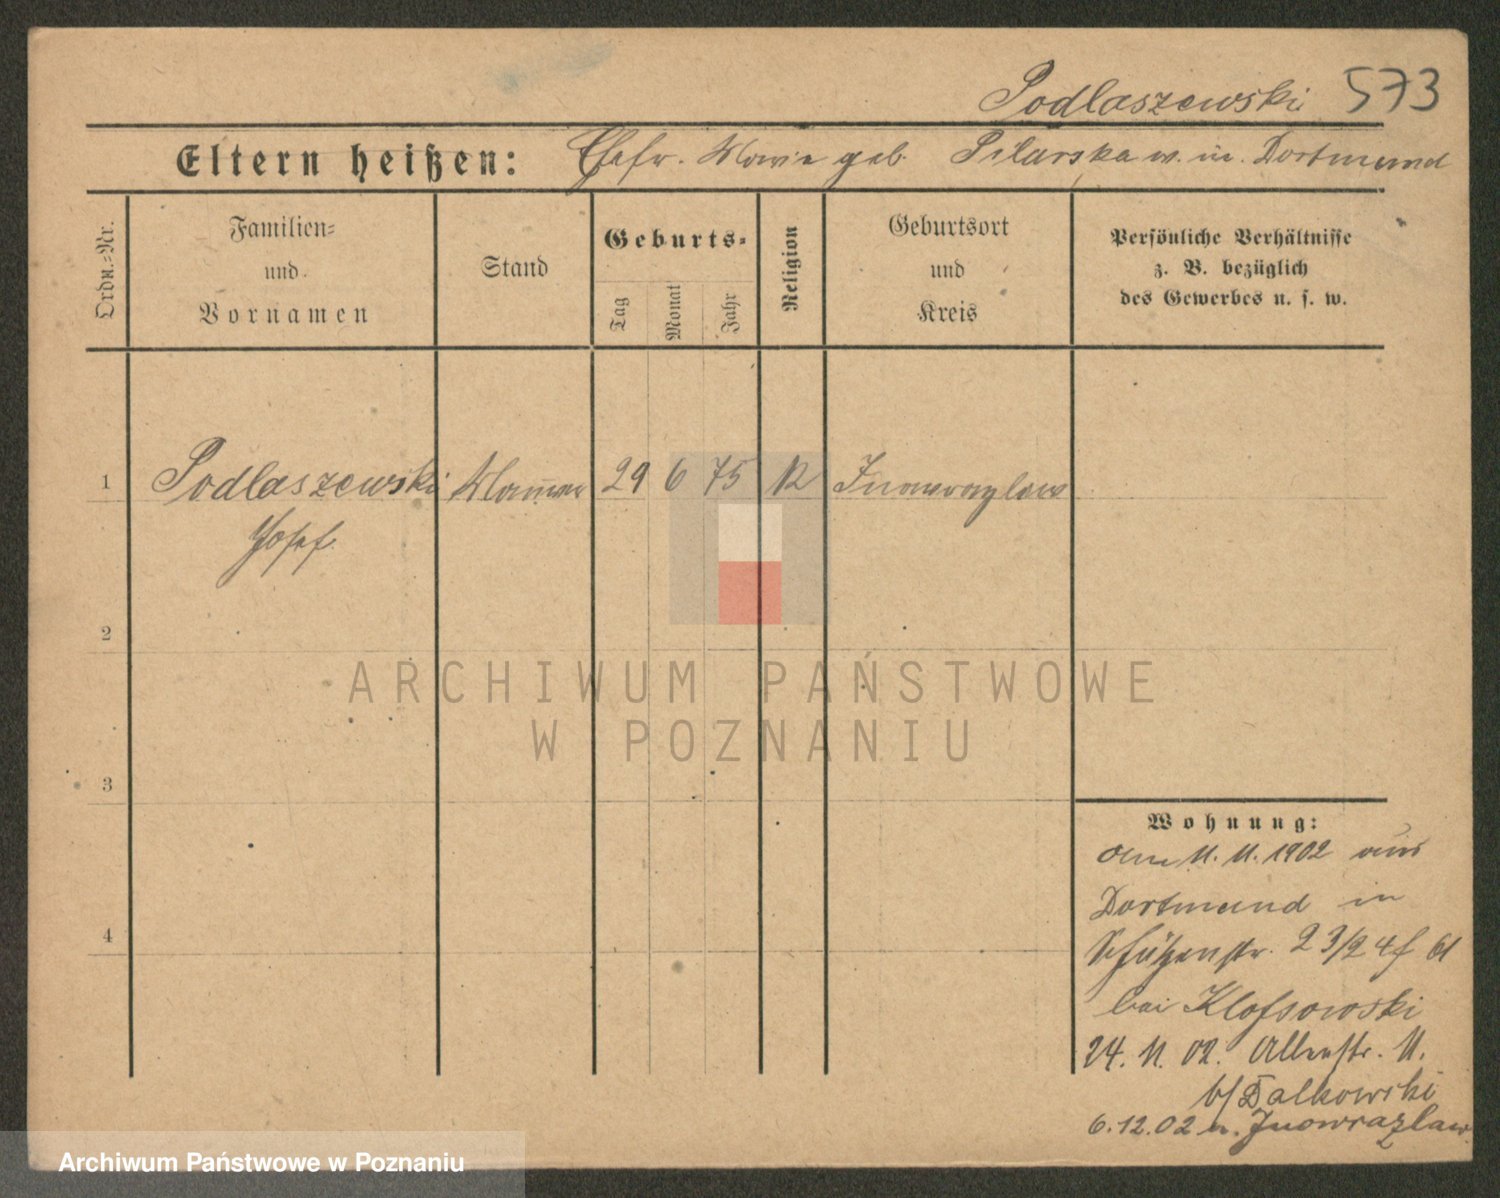 Podlaszewski 573
Eltern heißen: Ehefr. Marie geb. Pilarska w. in Dortmund
Ordn.=Nr.
Familien=
und
Vornamen
Stand
Geburts=
Tag
Monat
Jahr
Religion
Geburtsort
und
Kreis
Persönliche Verhältnisse
z. B. bezüglich
des Gewerbes u. s. w.
1 Podlaszewski 29 6 75 Inowrazlaw
Josef
2
3
4
Wohnung:
den 11. 11. 1902 aus
Dortmund in
Schützenstr. 23/24
bei Klofsowski
24. 11. 02. 11.
b/ Dalkowski
6.12.02 n. Inowrazlaw
ARCHIWUM PAŃSTWOWE
W POZNANIU
Archiwum Państwowe w Poznaniu